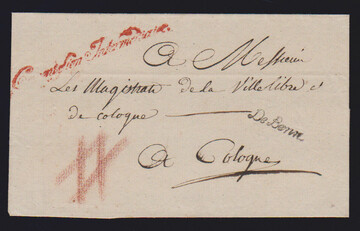 Commission Intermédiaire
A Messieurs
Les Magistrats de la Ville libre et
de cologne
De Bonn.
A Cologne